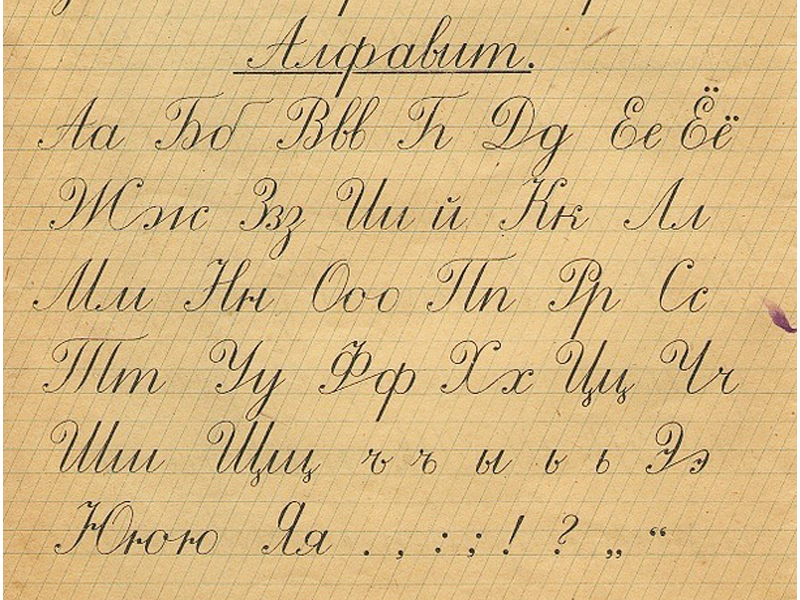 Алфавит.
Аа Бб Ввв Гг Дд Ее Ёё
Жж Ззз Ии й Кк Лл
Мм Нн Ооо Пп Рр Сс
Тт Уу Фф Хх Цц Чч
Шш Щщ ъ ъ ы ь ь Ээ
Юю Яя . , : ; ! ? „ “